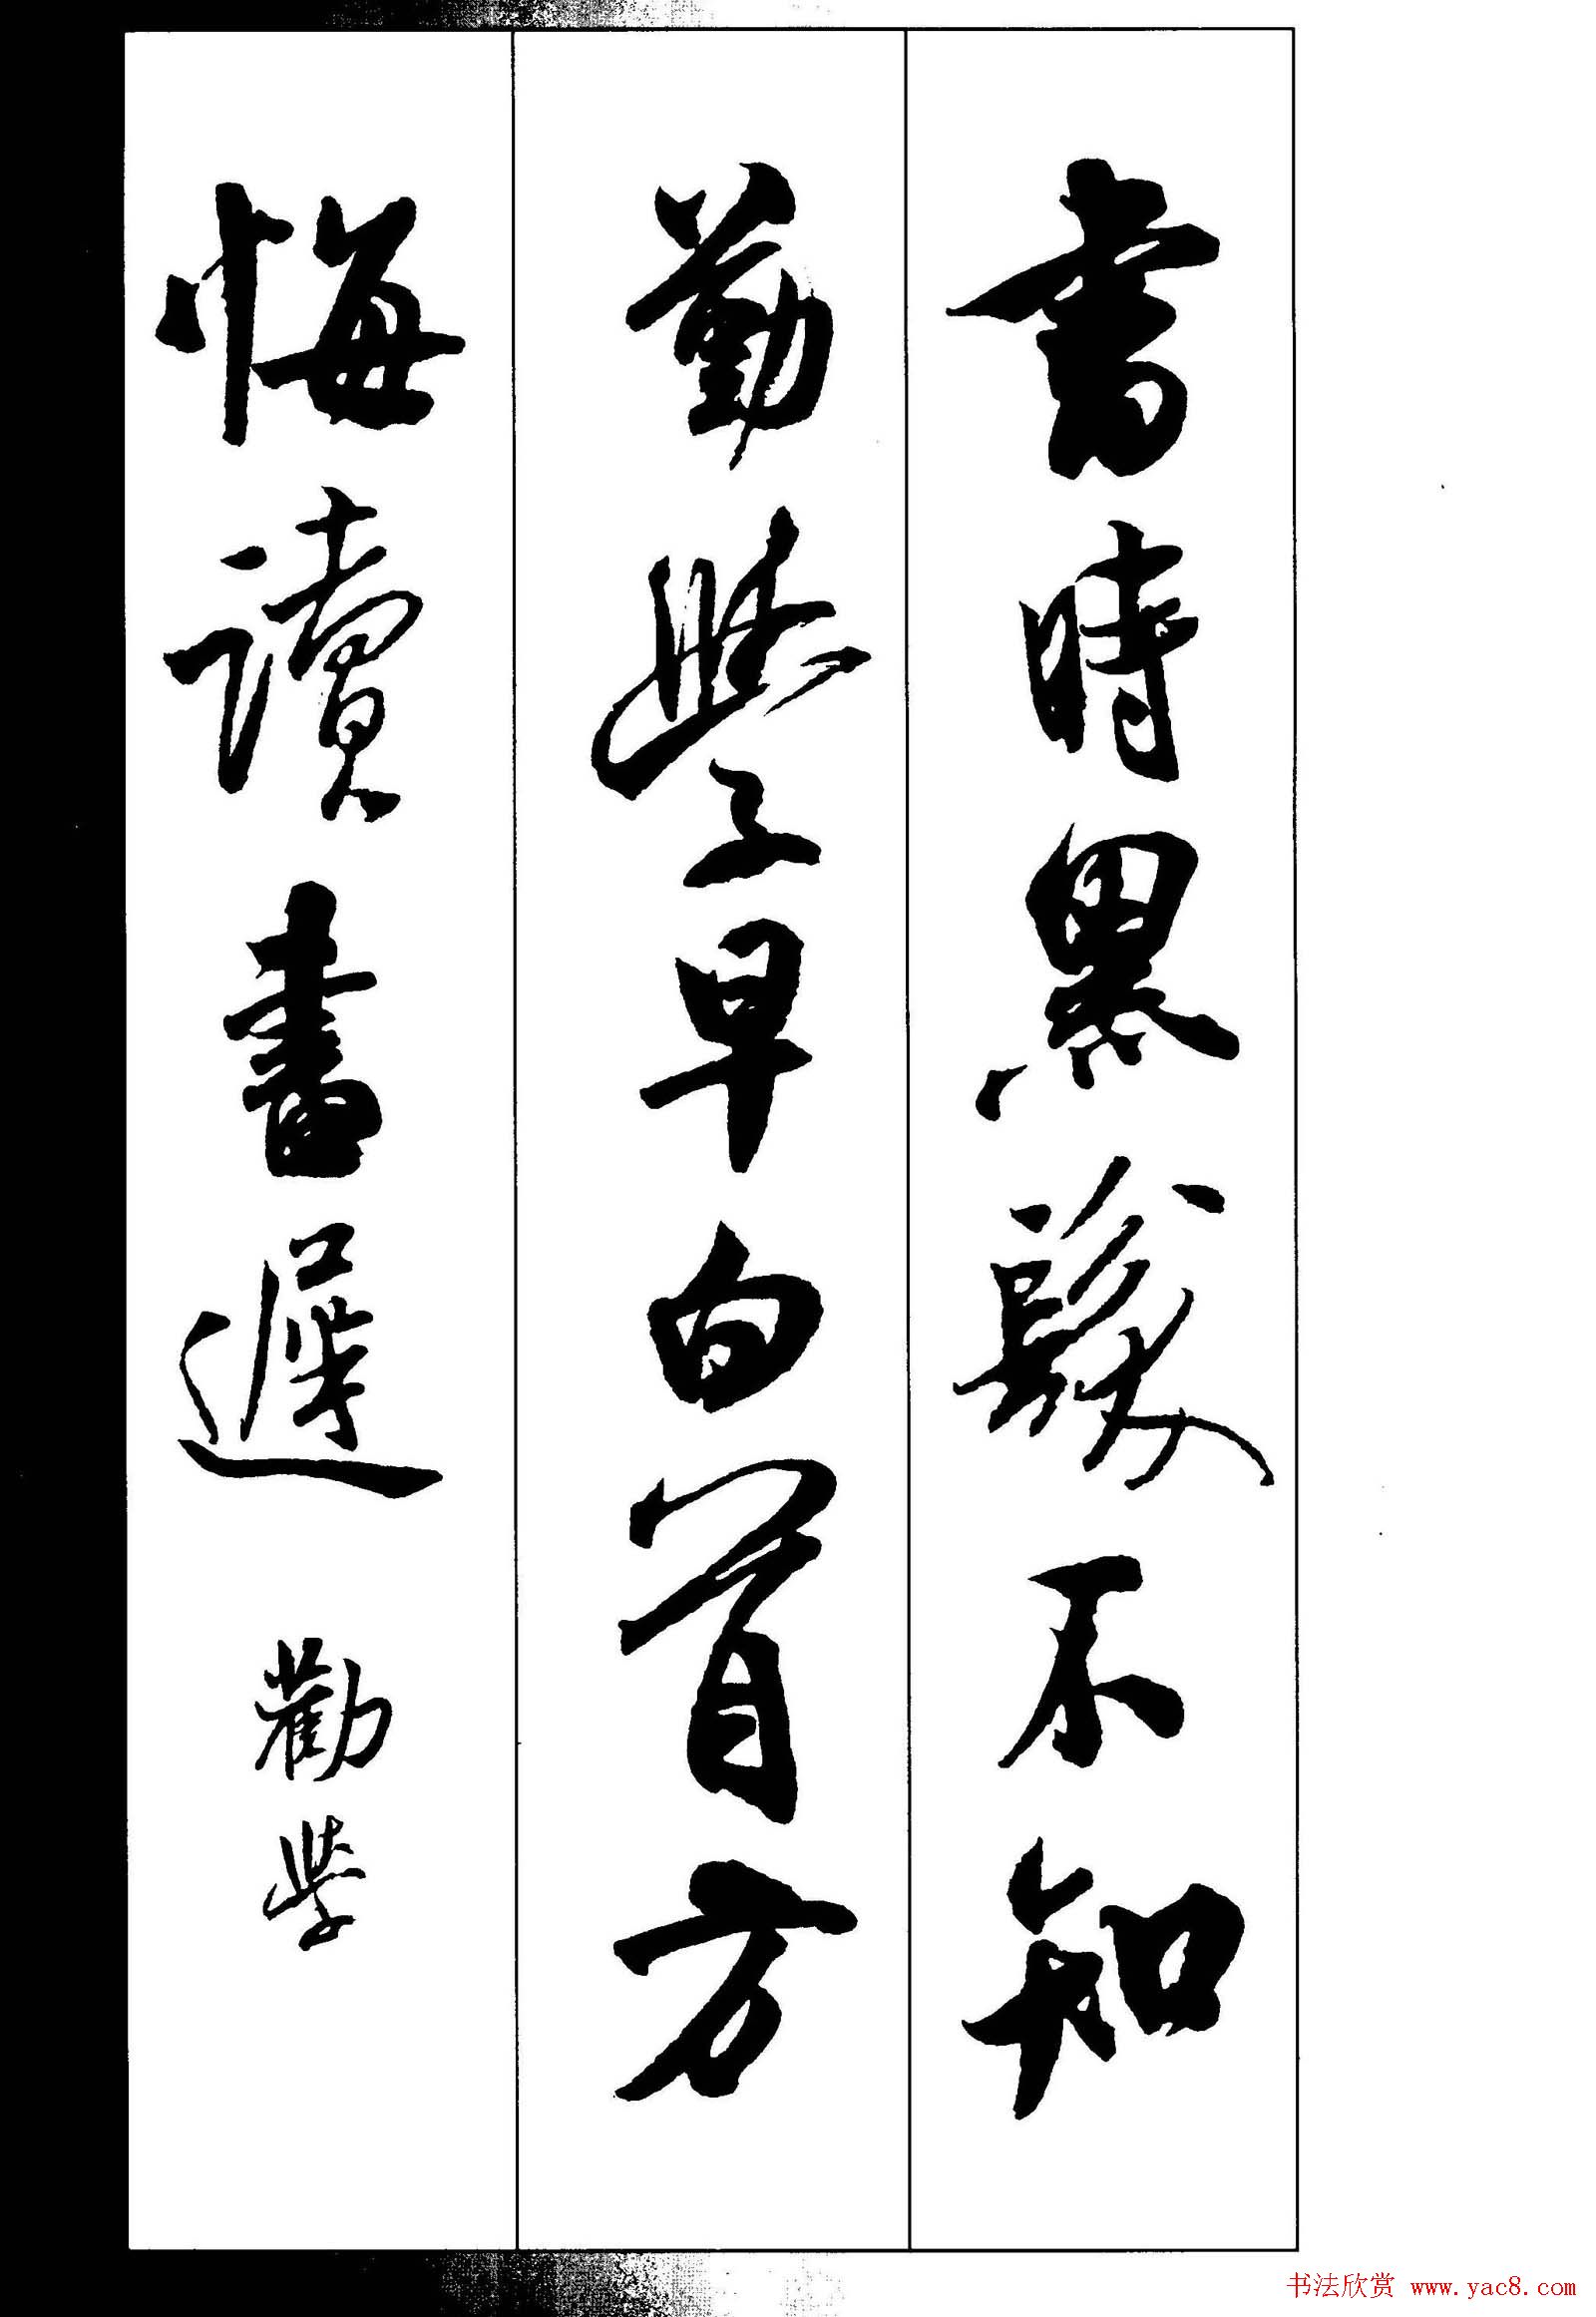 書時黑髮不知
勤學早白首方
悔讀書遲 勸學
书法欣赏 www.yac8.com